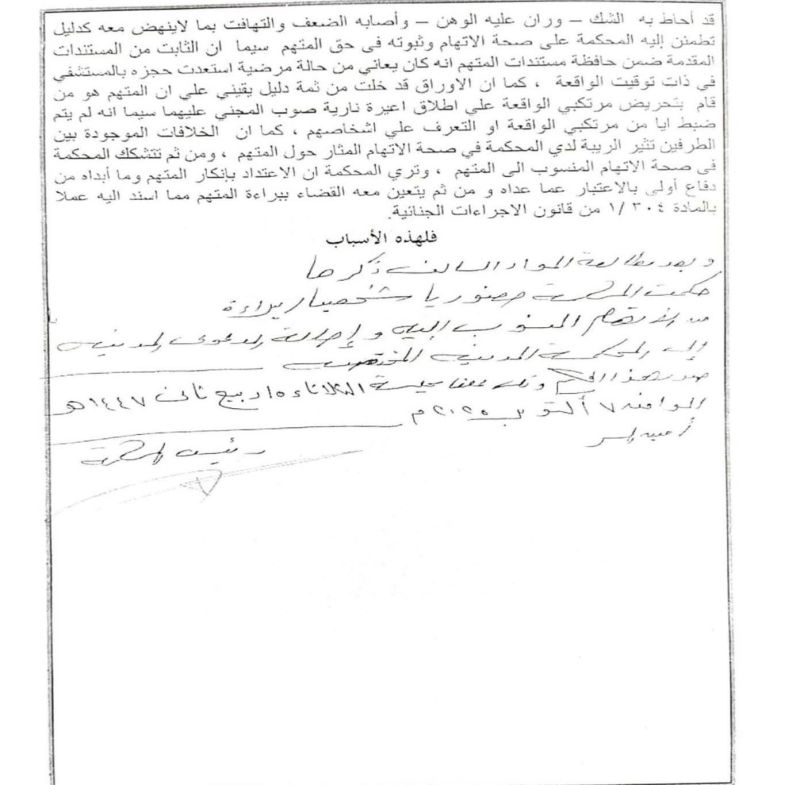 قد أحاط به الشك – وران عليه الوهن – وأصابه الضعف والتهافت بما لاينهض معه كدليل
تطمئن إليه المحكمة على صحة الاتهام وثبوته فى حق المتهم سيما ان الثابت من المستندات
المقدمة ضمن حافظة مستندات المتهم انه كان يعاني من حالة مرضية استعدت حجزه بالمستشفي
في ذات توقيت الواقعة ، كما ان الاوراق قد خلت من ثمة دليل يقيني علي ان المتهم هو من
قام بتحريض مرتكبي الواقعة علي اطلاق اعيرة نارية صوب المجني عليهما سيما انه لم يتم
ضبط ايا من مرتكبي الواقعة او التعرف علي اشخاصهم ، كما ان الخلافات الموجودة بين
الطرفين تثير الريبة لدي المحكمة في صحة الاتهام المثار حول المتهم ، ومن ثم تتشكك المحكمة
فى صحة الاتهام المنسوب الى المتهم ، وتري المحكمة ان الاعتداد بإنكار المتهم وما أبداه من
دفاع أولى بالاعتبار عما عداه و من ثم يتعين معه القضاء ببراءة المتهم مما اسند اليه عملا
بالمادة ٣٠٤ /١ من قانون الاجراءات الجنائية.
فلهذه الأسباب
وبعد مطالعة المواد السالف ذكرها
حكمت المحكمة حضوريا شخصيا ببراءة
من الاتهام المنسوب إليه وإحالة الدعوى المدنية
إلى المحكمة المدنية المختصة
صدر هذا الحكم وتلى علنا بجلسة الثلاثاء ١٥ ربيع ثانى ١٤٤٧هـ
الموافق ٧ أكتوبر ٢٠٢٥م
أمين السر
رئيس المحكمة